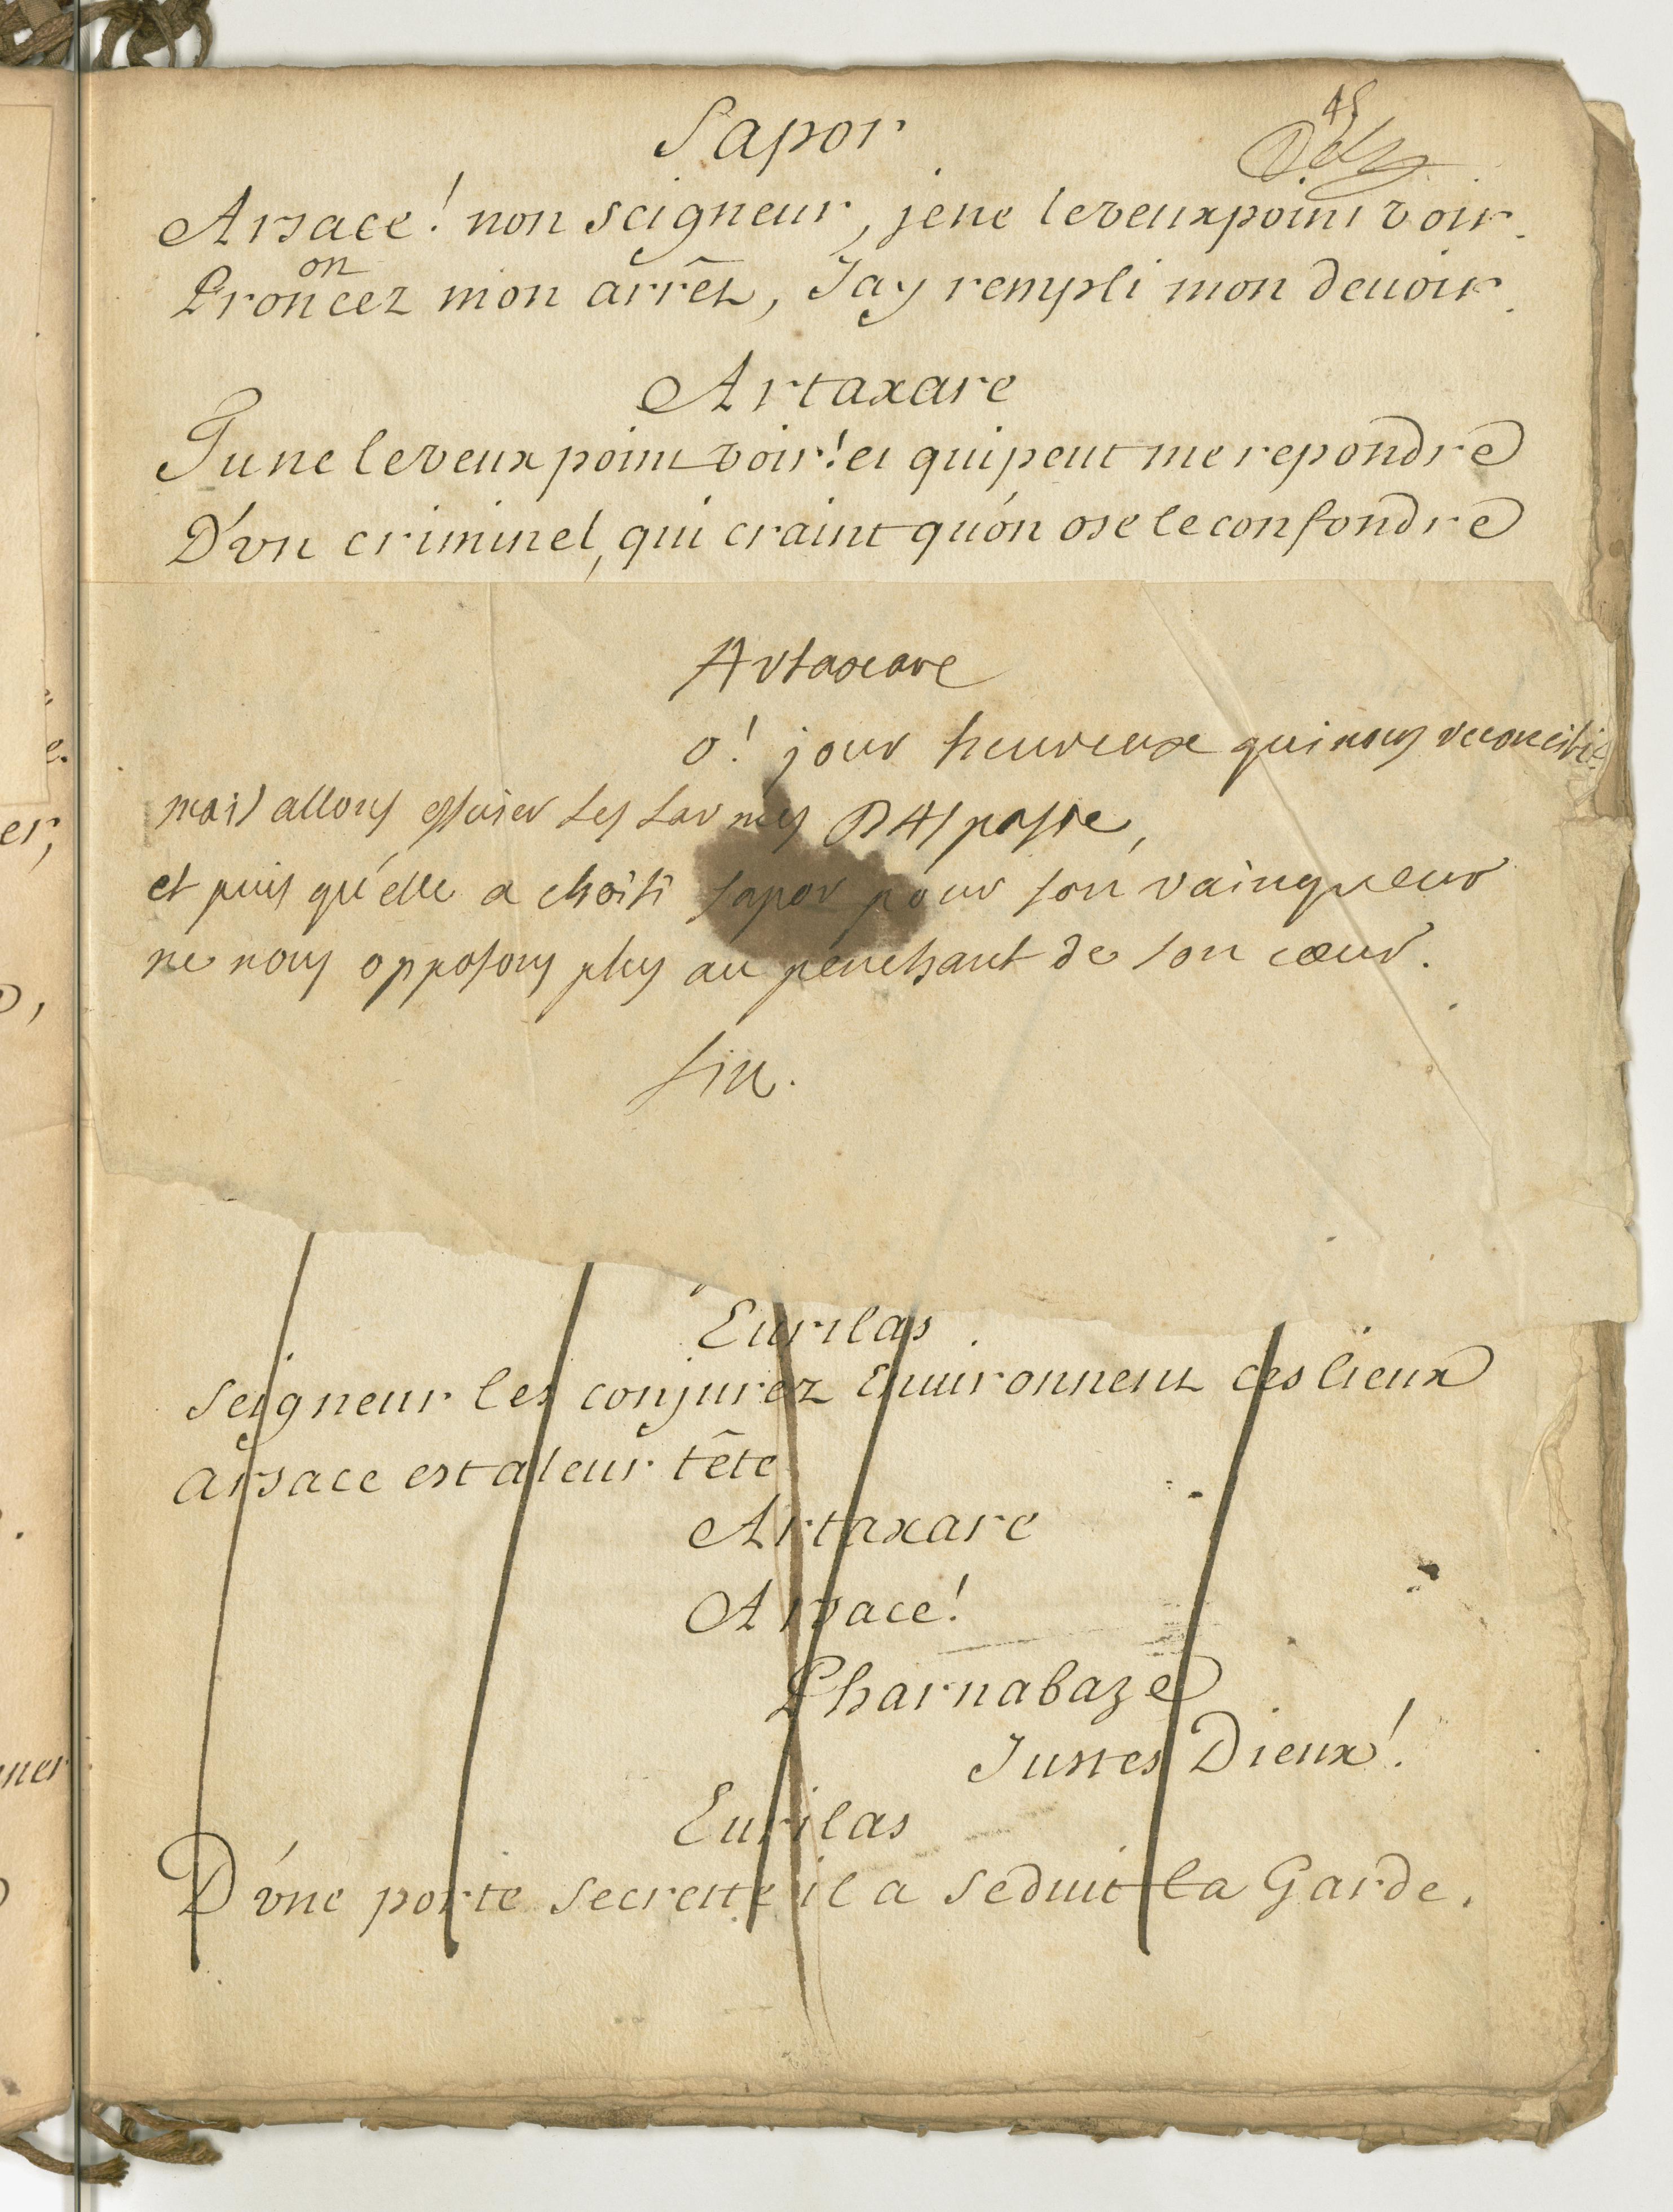 45
Sapor
Arsace! non seigneur, je ne le veux point voir.
Prononcez mon arrêt, Jay rempli mon devoir.
Artaxare
Tu ne le veux point voir! et qui peut me repondre
D'vn criminel, qui craint qu'on ose le confondre
Artaxare
o! jour heureux qui nous reconcilie.
mais allons essuier les larmes D'Aspasie,
et puis qu'elle a choisi sapor pour son vainqueur
ne nous opposons plus au penchant de son cœur.
fin.
Eurilas.
Seigneur les conjurez Enuironnent ces lieux
arsace est a leur tête
Artaxare
Arsace!
Pharnabaze
Justes Dieux!
Eurilas
D'vne porte secrette il a seduit la Garde.